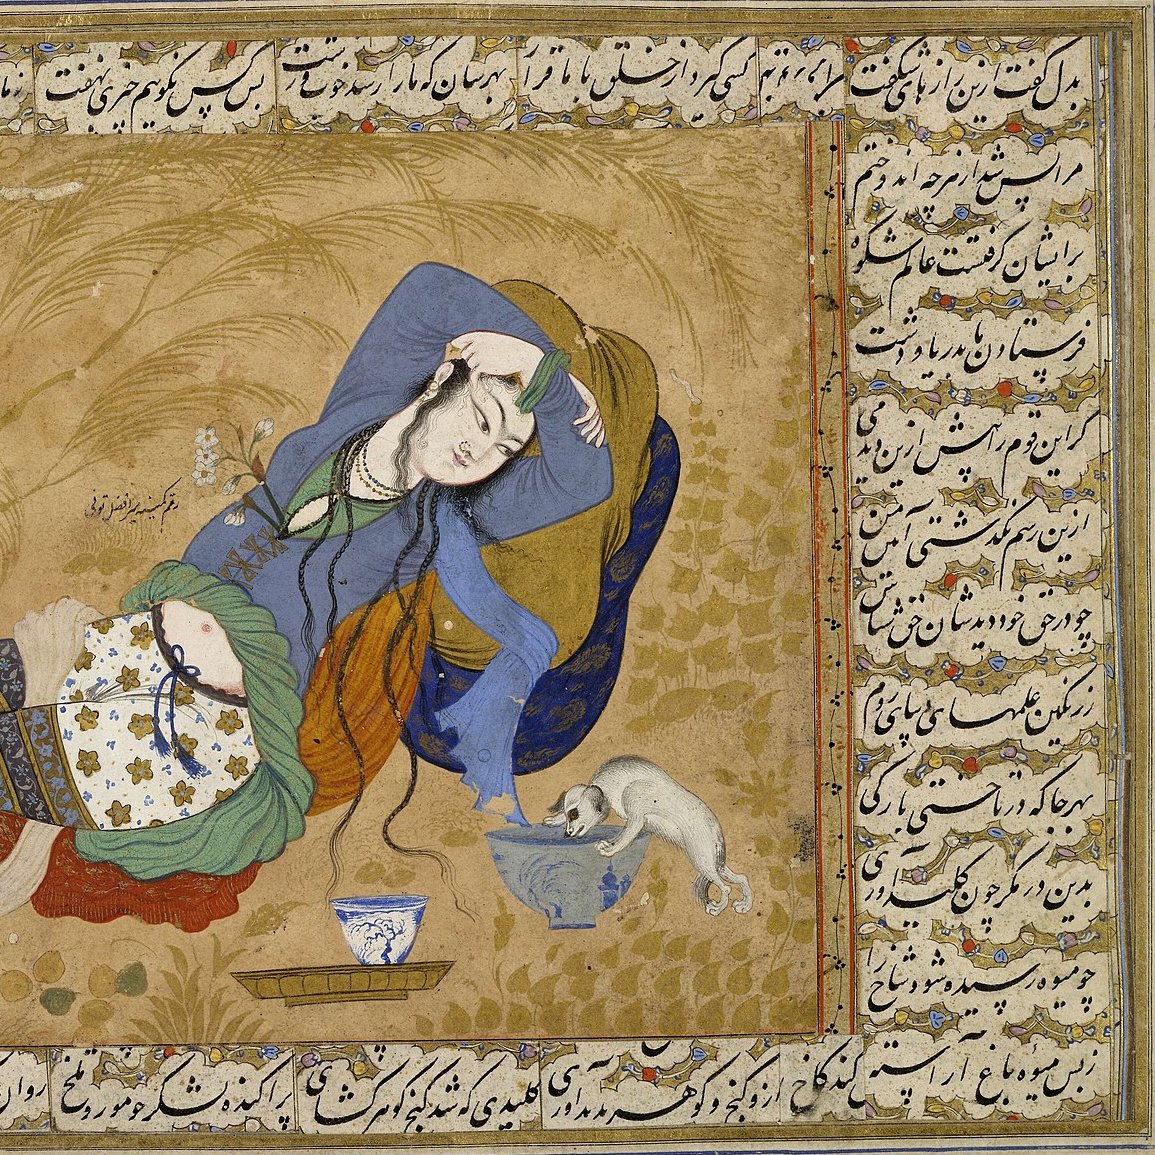 بدل گفت ازین راز های شگفت
کسی کبر دار خلق با ما قرا
بهرسان که ما را رسد خوب و زشت
بس کس نگوییم چیزی نهفت
مرا پس شد از هرچه اندوختم
بر ایشان گرفتست عالم شکوه
فرستادن ما بدریا و دشت
گر این قوم را پیش ازین دیدمی
ازین رسم نگذشتی آیین من
چو در حق خود دیدشان حق شناس
زرنگین علمهای دیبای روم
بهر جا که در تاختی بارگی
بدین در مگر چون کلید آوری
چو میوه رسیده شود شاخ را
ز بس میوه باغ آراسته
کند کاخ
از و گنج و گوهر پدید آوری
کلیدی که شد گنج گوهر گشای
پراکنده لشکر چو مور و ملخ
روان
رقم کمینه میر افضل تونی